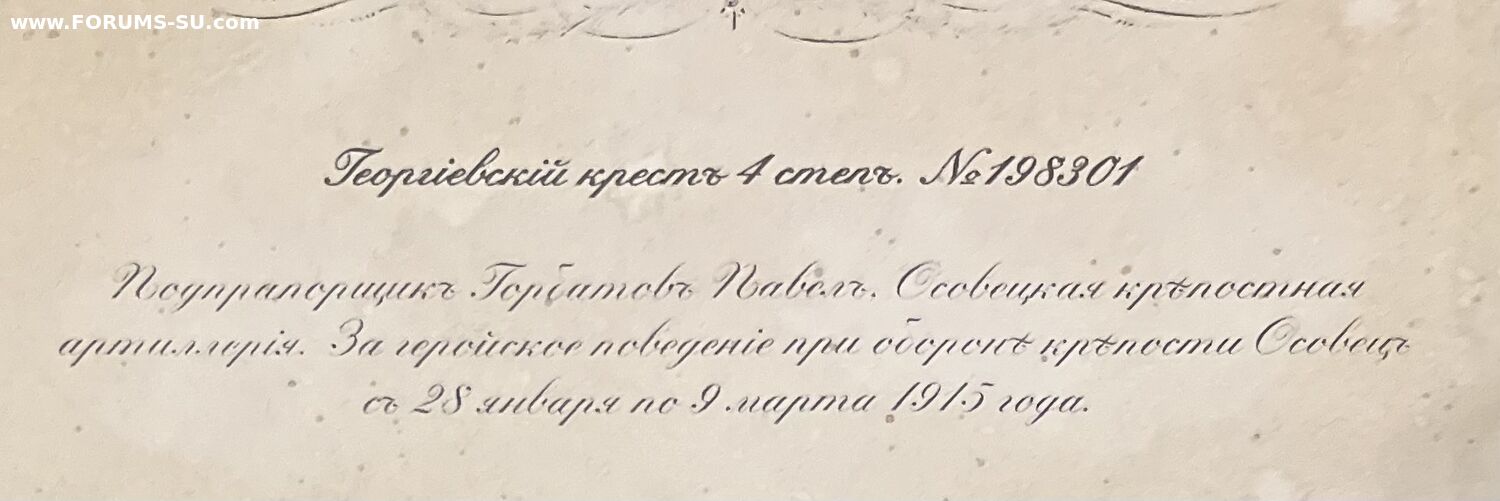 www.FORUMS-SU.com
Георгіевскій крестъ 4 степ. №198301
Подпрапорщикъ Горбатовъ Павелъ, Осовецкая крѣпостная
артиллерія. За геройское поведеніе при оборонѣ крѣпости Осовецъ
съ 28 января по 9 марта 1915 года.